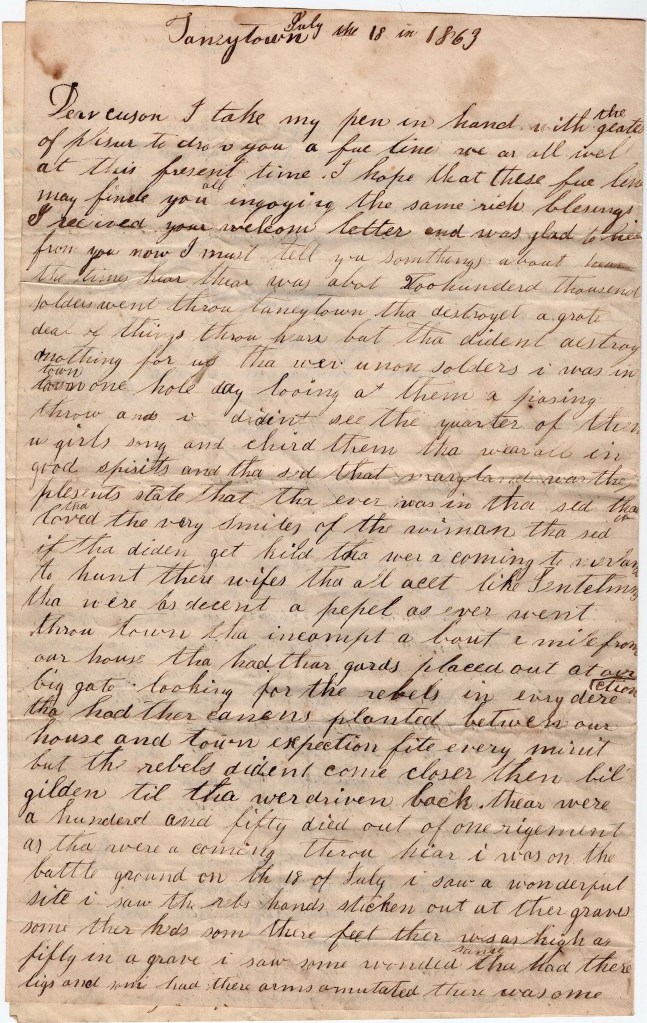 Taneytown July the 18 in 1863
Derr cuson I take my pen in hand with the grates
of plisur to drop you a fue line we ar all wel
at this present time. I hope that these fue line
may finde you all ingoying the same rich blesings
I recived your welcom letter and was glad to hear
from you now I must tell you somthings about
the times hear thear was abot Toohunderd thousend
solders went throu taneytown tha destroyet a grate
deal of things throu hear but tha dident destroy
nothing for us tha wer unon solders i was in
town one hole day looing at them a pasing
throw and i dident see the quarter of them
u girls song and chird them tha wear all in
good spirits and tha sed that maryland was the
plesents state that tha ever was in tha sed tha
tha loved the very smiles of the wiman tha sed
if tha diden get kild tha wer a coming to
to hunt there wifes tha al acet like Gentelmen
tha were as decent a pepel as ever went
throu town tha incampt a bout a mile from
our house tha had thar gards placed out at our
big gate looking for the rebels in evry derection
tha had ther canens planted between our
house and town expection fite every minit
but the rebels dident come closer then bil
gilden til tha wer driven back. thear were
a hunderd and fifty died out of one rigement
as tha were a coming throu hear i was on the
battle ground on th 18 of July i saw a wonderful
site i saw the rebs hands sticken out at ther graves
some ther heds som there feet ther was as high as
fifty in a grave i saw some wonded some tha had there
ligs and som had there arms amutated there was ome